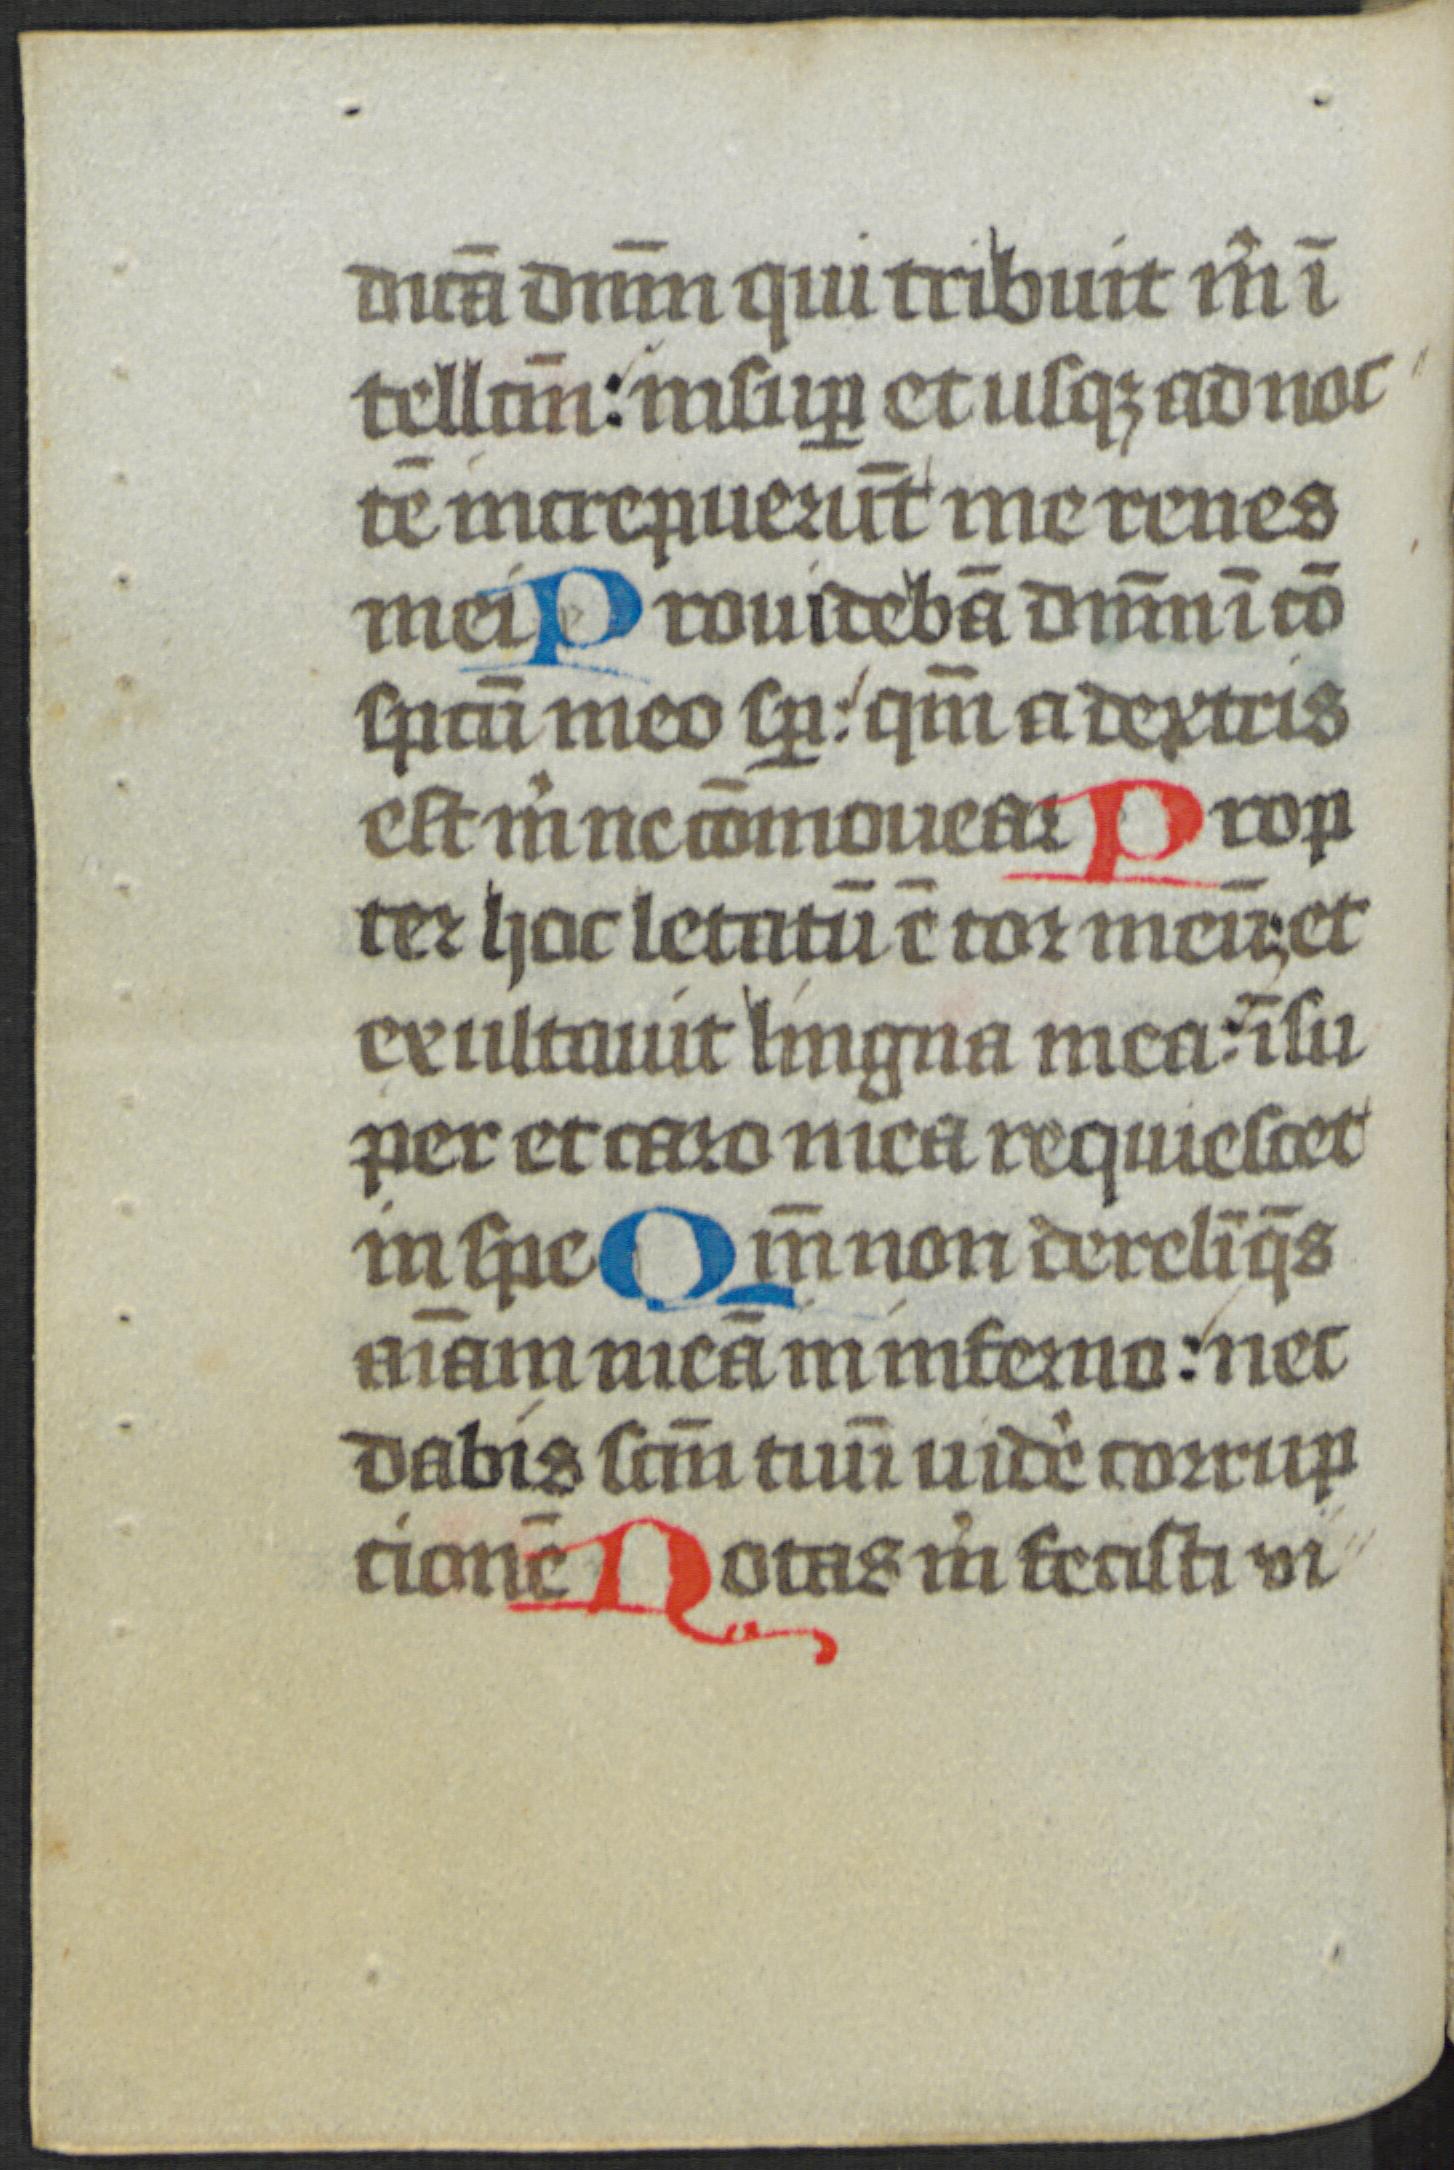 dicā dn̄m qui tribuit m̄ ī
tellcm̄: insup̱ et usqꝫ ad noc
tē increpuerūt me renes
mei Prouidebā dn̄m ī cō
spcū meo sp̱: qm̄ a dextris
est m̊ ne cōmouear Prop
ter hoc letatū ē cor meū: et
exultauit lingua mea: īsu
per et caro mea requiescet
in spe Qm̄ non dereliq̄s
aīam meā in inferno: nec
dabis scm̄ tuū uidē corrup
cionē Notas m̊ fecisti vi